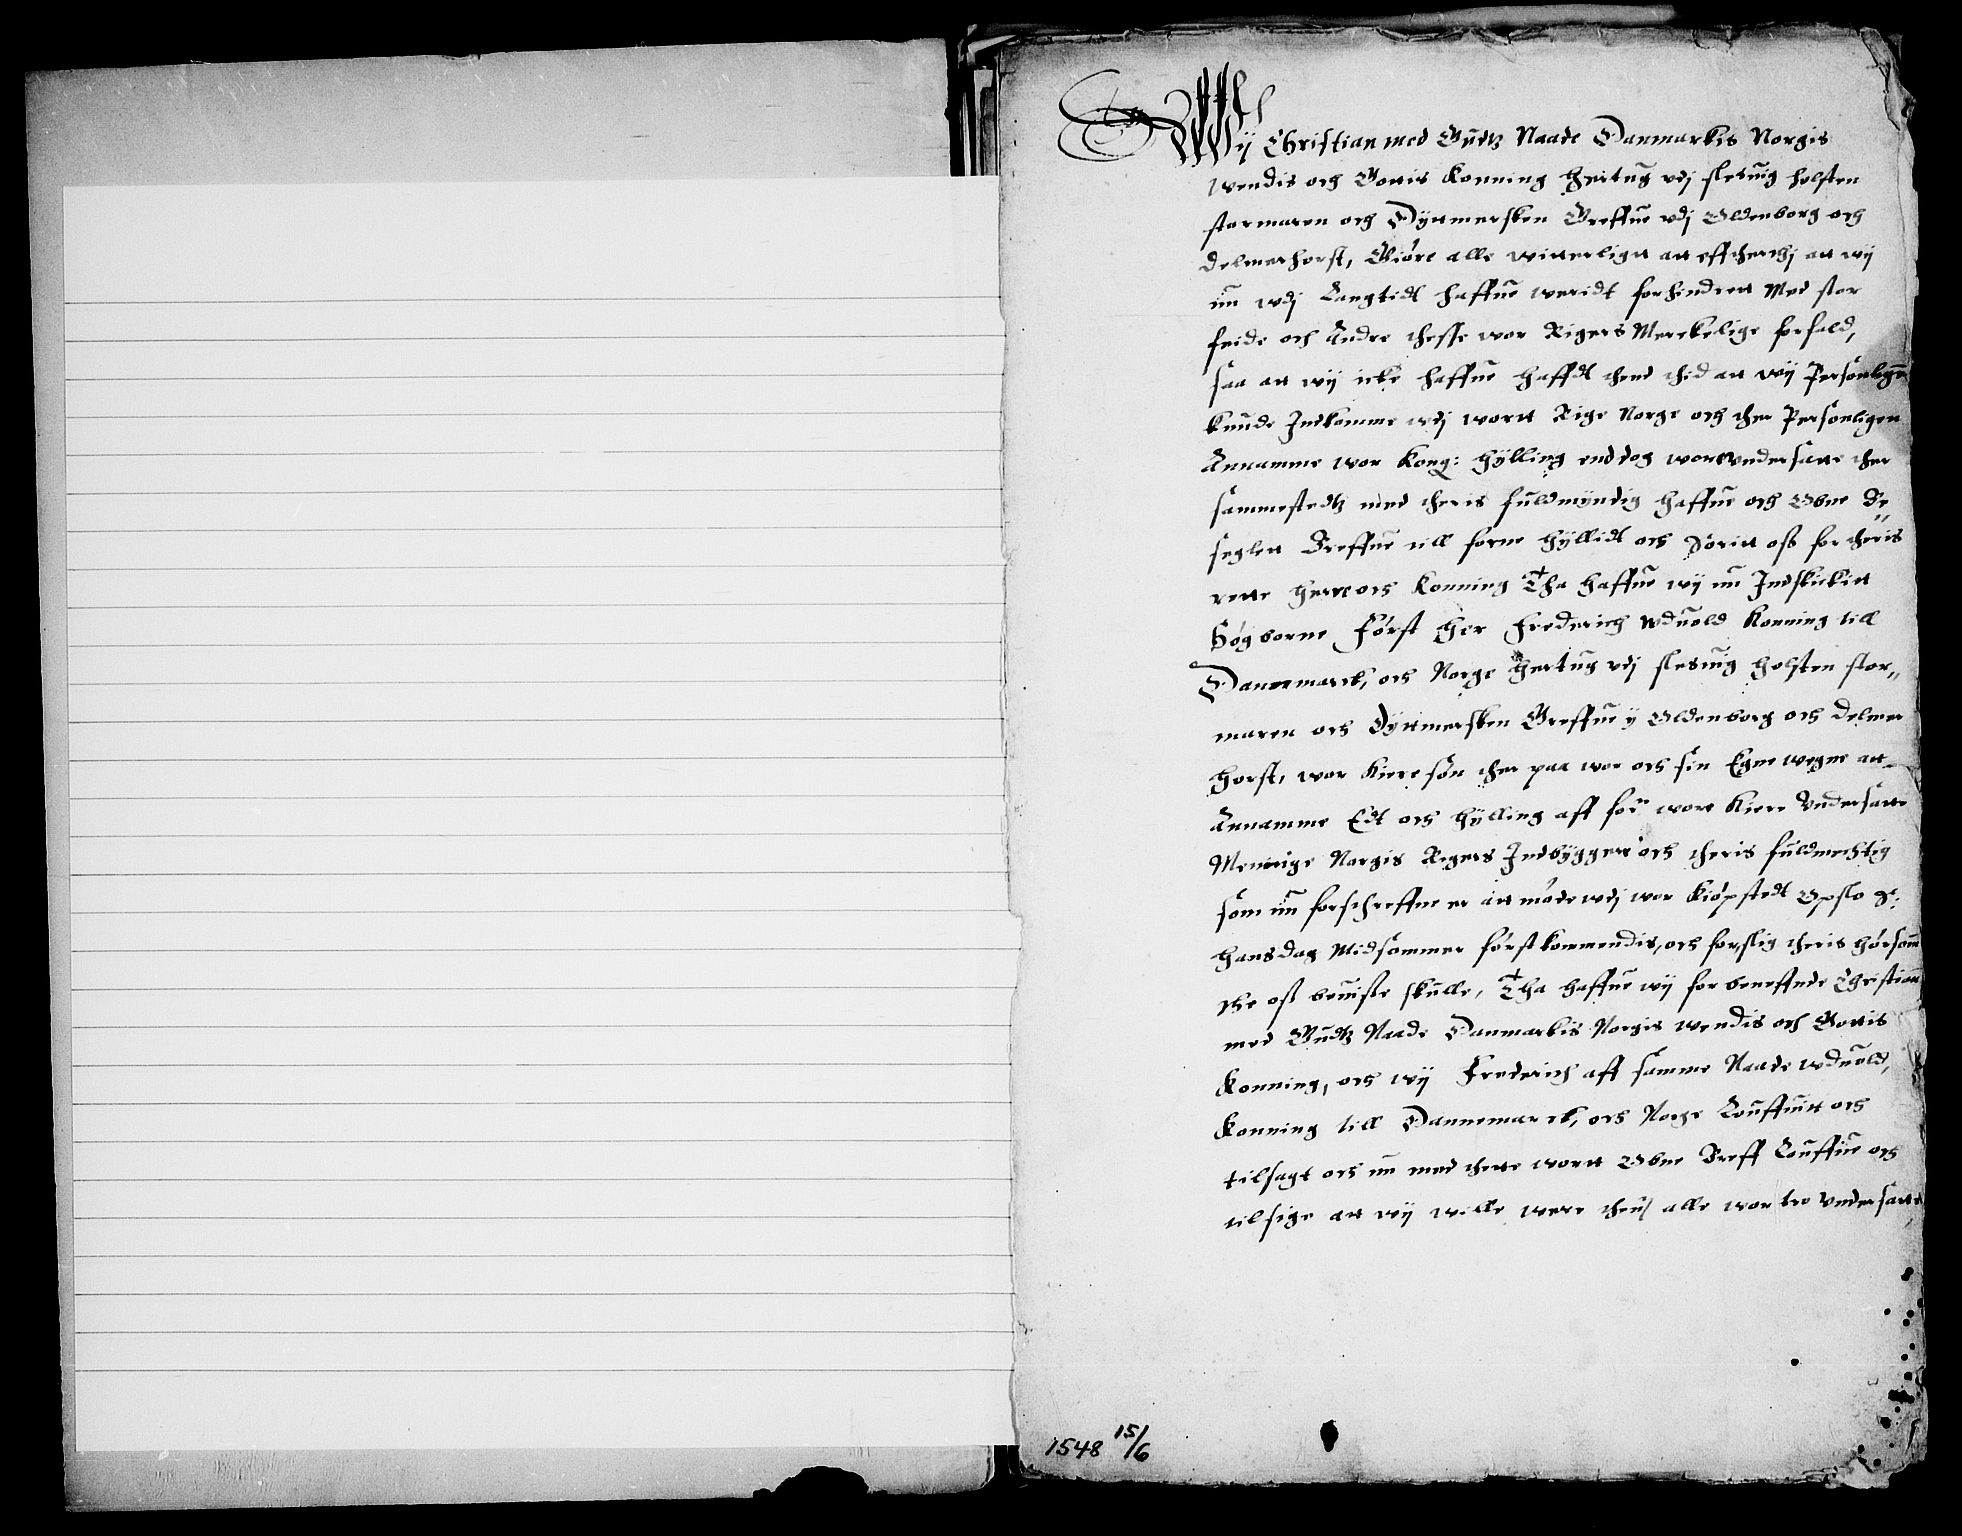 Wij Christian med Gudtz Naade Danmarkis Norgis
wendis och Gottis Konning Hertug vdj slesuig holsten
stormaren och Dyttmersken Greffue vdj Oldenborg och
Delmenhorst, Giøre alle witterligtt att effther thj att wij
nu wdj Langtidt haffue weridt forhindrett Med stor
feide och Andre thesse wor Rigers Merckelige forfald,
saa att wij icke haffue hafft thend thid att wij Personligen
kunde Indkomme wdj wortt Rige Norge och ther Personligen
Annamme wor Kong: Hylling end dog wore vndersatte ther
sammestedtz med theris fuldmyndig haffue och Obne Be
seglett Breffue till forne hyllidt och Soritt oss for theris
rette Herre och Konning Tha haffue wij nu Indskickitt
Høgborne Først Her Frederich wduold Konning till
Dannemarck, och Norge Hertug vdj slesuig holsten stor
maren och Dyttmersken Greffue y Oldenborg och Delmen
horst, wor kiere søn ther paa wor och sin Egne wegne att
Annamme Edt och hylling aff for: wore kiere Vndersatte
Mennige Norgis Rigers Indbyggere och theris fuldmechtig
som nu forschreffne er att møde wdj wor kiøpstedt Opslo S:
Hansdag Midsommer først kommendis, och for slig theris hørsom
the oss beuiste skulle, Tha haffue wij forbeneffnde Christian
med Gudtz Naade Danmarkis Norgis wendis och Gottis
Konning, och wij Frederich aff samme Naade wduold,
Konning till Dannemarck, och Norge Louffuitt och
tilsagt och nu med thette wortt Obne Breff Louffue och
tilsige att wij wille were thend alle wor tro Vndersatte
1548 15/6